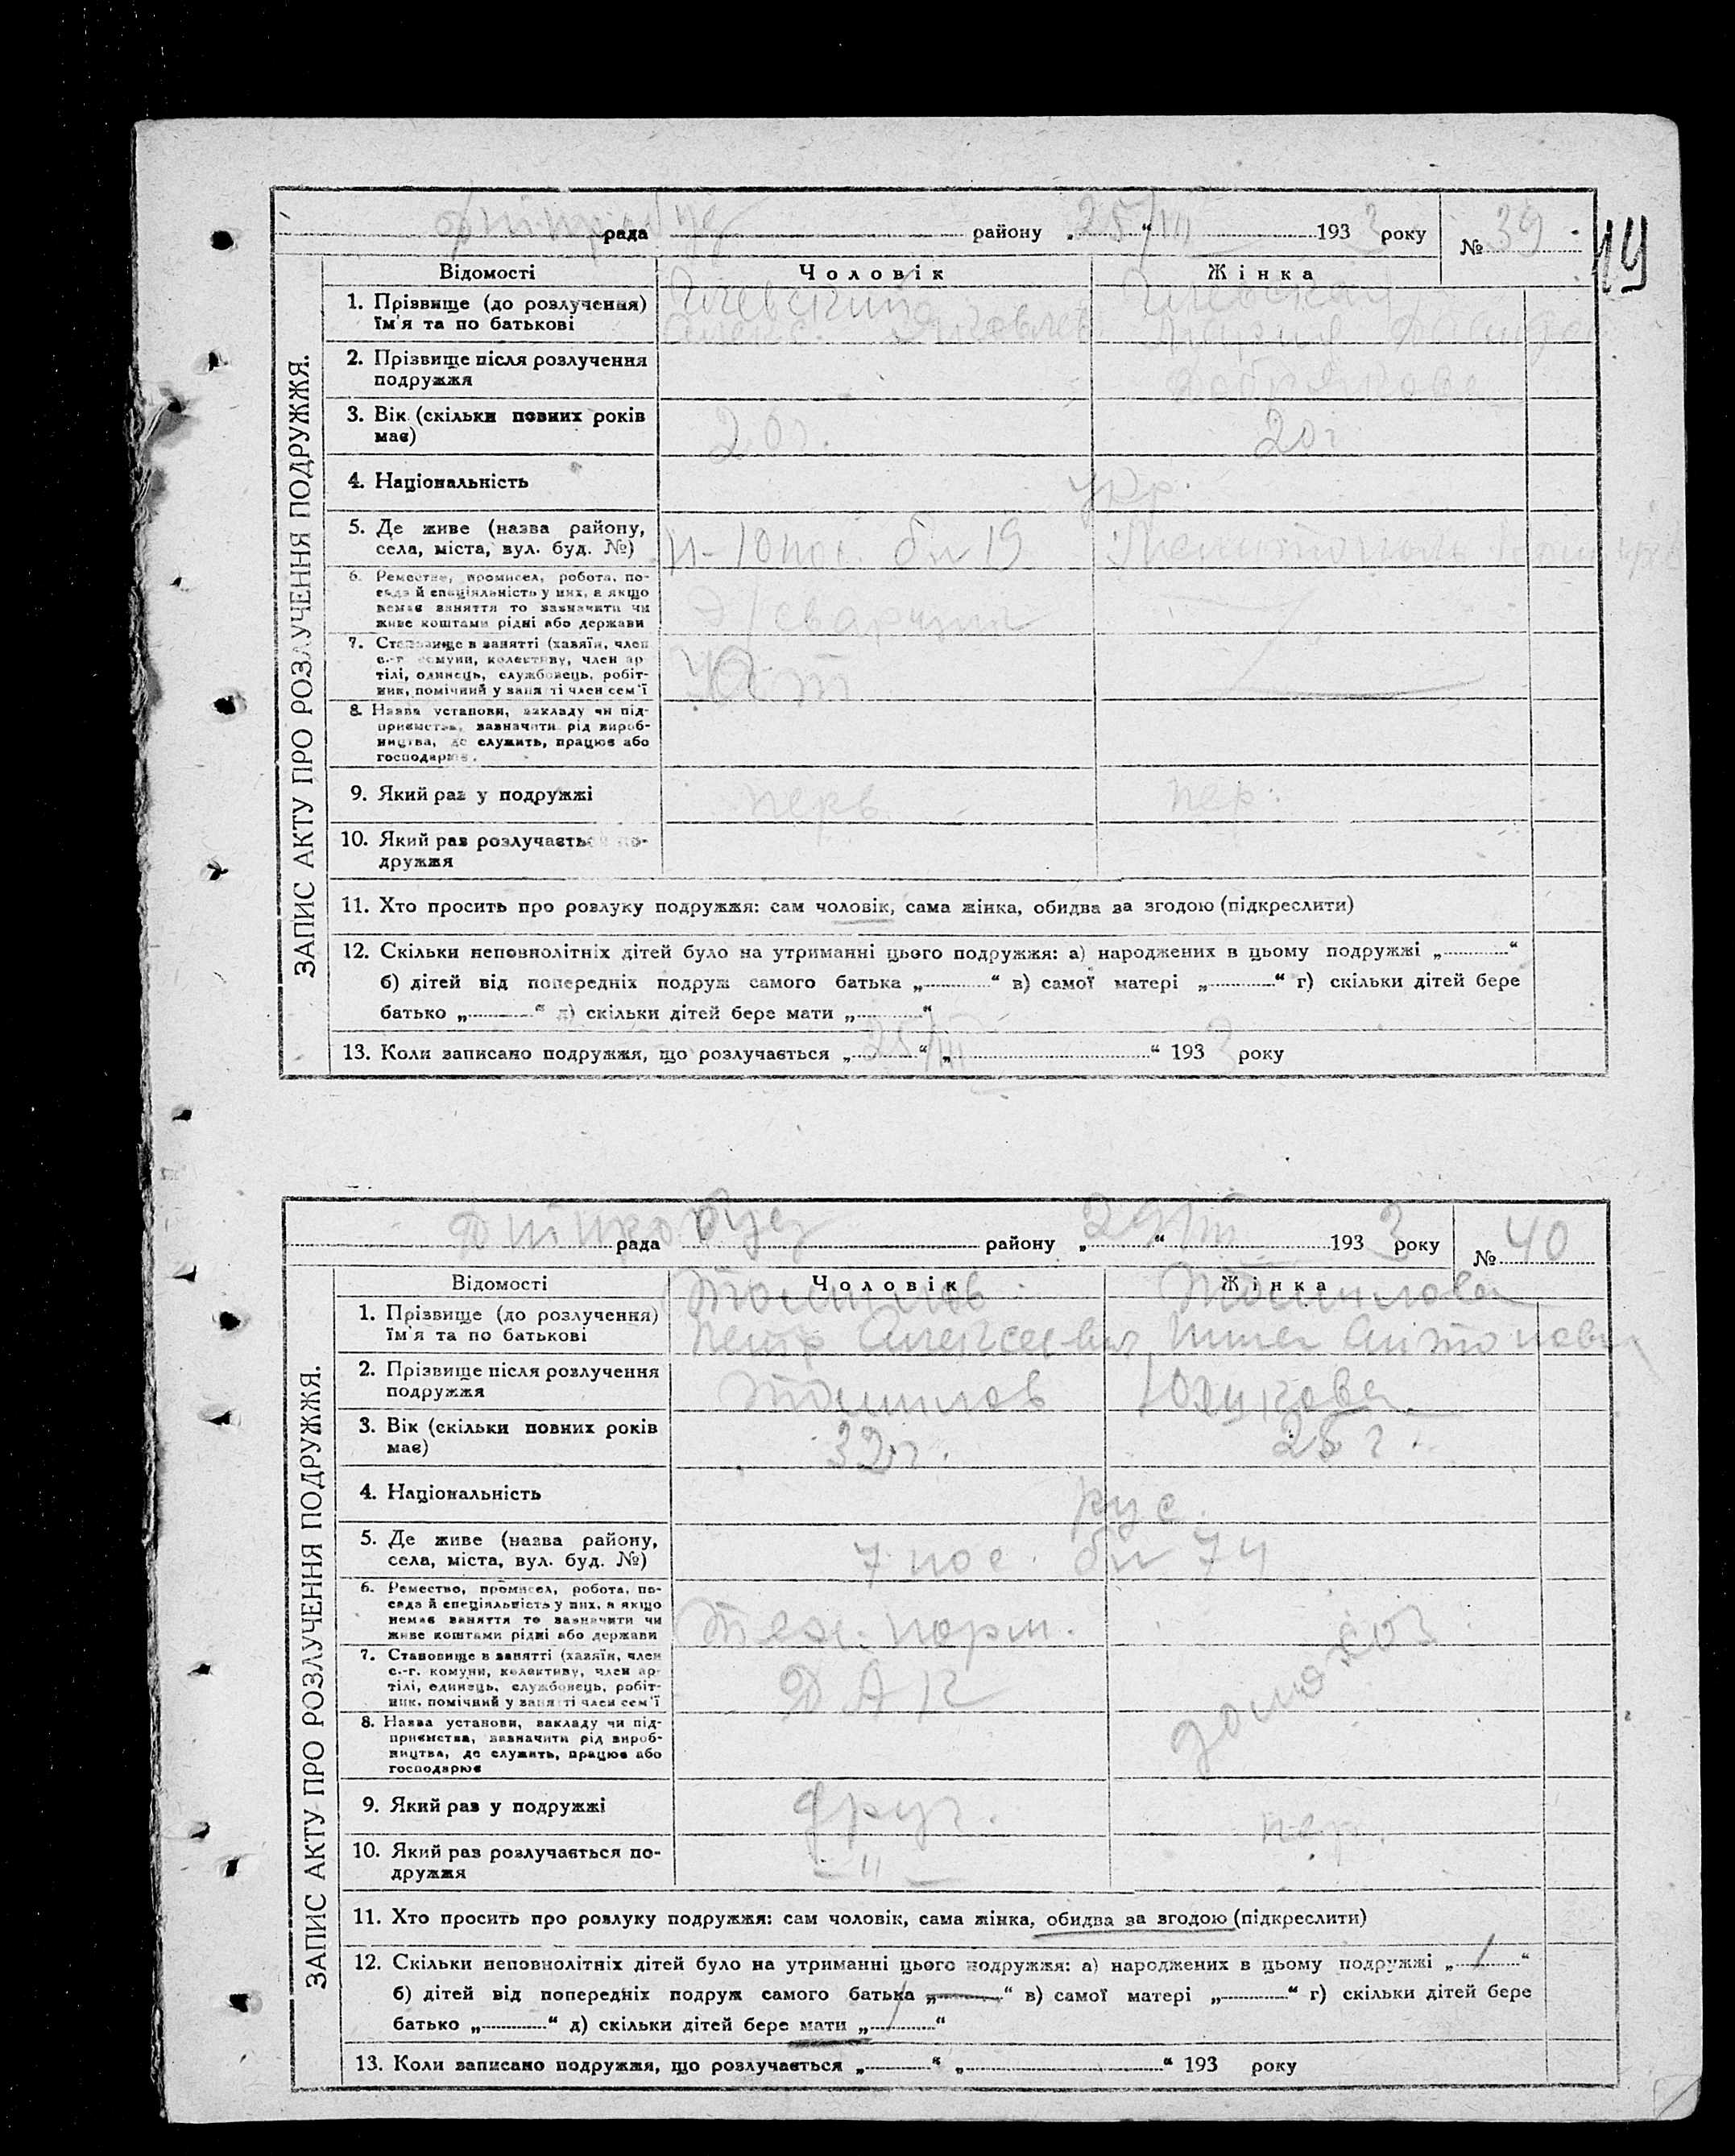 рада району „25/III“ 1933 року № 39
19
ЗАПИС АКТУ ПРО РОЗЛУЧЕННЯ ПОДРУЖЖЯ.
Відомості Чоловік Жінка
1. Прізвище (до розлучення)
Їм'я та по батькові
2. Прізвище після розлучення
подружжя
3. Вік (скільки повних років
має) 20 г. 20 г
4. Національність укр.
5. Де живе (назва району,
села, міста, вул. буд. №)
6. Ремество, промисел, робота, по-
сада й спеціяльність у них, а якщо
немає заняття то зазначити чи
живе коштами рідні або держави
7. Становище в занятті (хазяїн, член
с.-г. комуни, колективу, член ар-
тілі, одинець, службовець, робіт-
ник, помічний у занятті член сем'ї
8. Назва установи, закладу чи під-
приємства, зазначити рід вироб-
ництва, де служить, працює або
господарює
9. Який раз у подружжі перв. пер.
10. Який раз розлучається по-
дружжя
11. Хто просить про розлуку подружжя: сам чоловік, сама жінка, обидва за згодою (підкреслити)
12. Скільки неповнолітніх дітей було на утриманні цього подружжя: а) народжених в цьому подружжі „ “
б) дітей від попередніх подруж самого батька „ “ в) самої матері „ “ г) скільки дітей бере
батько „ “ д) скільки дітей бере мати „ “
13. Коли записано подружжя, що розлучається „25/III“ „ “ 1933 року
рада району „ “ 1933 року № 40
ЗАПИС АКТУ ПРО РОЗЛУЧЕННЯ ПОДРУЖЖЯ.
Відомості Чоловік Жінка
1. Прізвище (до розлучення) Томилов Томилова
Їм'я та по батькові Петр Алексеевич
2. Прізвище після розлучення
подружжя Томилов
3. Вік (скільки повних років
має) 32 г. 25 г.
4. Національність рус.
5. Де живе (назва району,
села, міста, вул. буд. №) 7 пос. бл 74
6. Ремество, промисел, робота, по-
сада й спеціяльність у них, а якщо
немає заняття то зазначити чи
живе коштами рідні або держави
Тех. норм. домохоз
7. Становище в занятті (хазяїн, член
с.-г. комуни, колективу, член ар-
тілі, одинець, службовець, робіт-
ник, помічний у занятті член сем'ї
8. Назва установи, закладу чи під-
приємства, зазначити рід вироб-
ництва, де служить, працює або
господарює
9. Який раз у подружжі друг. пер.
10. Який раз розлучається по-
дружжя –"–
11. Хто просить про розлуку подружжя: сам чоловік, сама жінка, обидва за згодою (підкреслити)
12. Скільки неповнолітніх дітей було на утриманні цього подружжя: а) народжених в цьому подружжі „1“
б) дітей від попередніх подруж самого батька „—“ в) самої матері „ “ г) скільки дітей бере
батько „ “ д) скільки дітей бере мати „1“
13. Коли записано подружжя, що розлучається „ “ „ “ 193 року